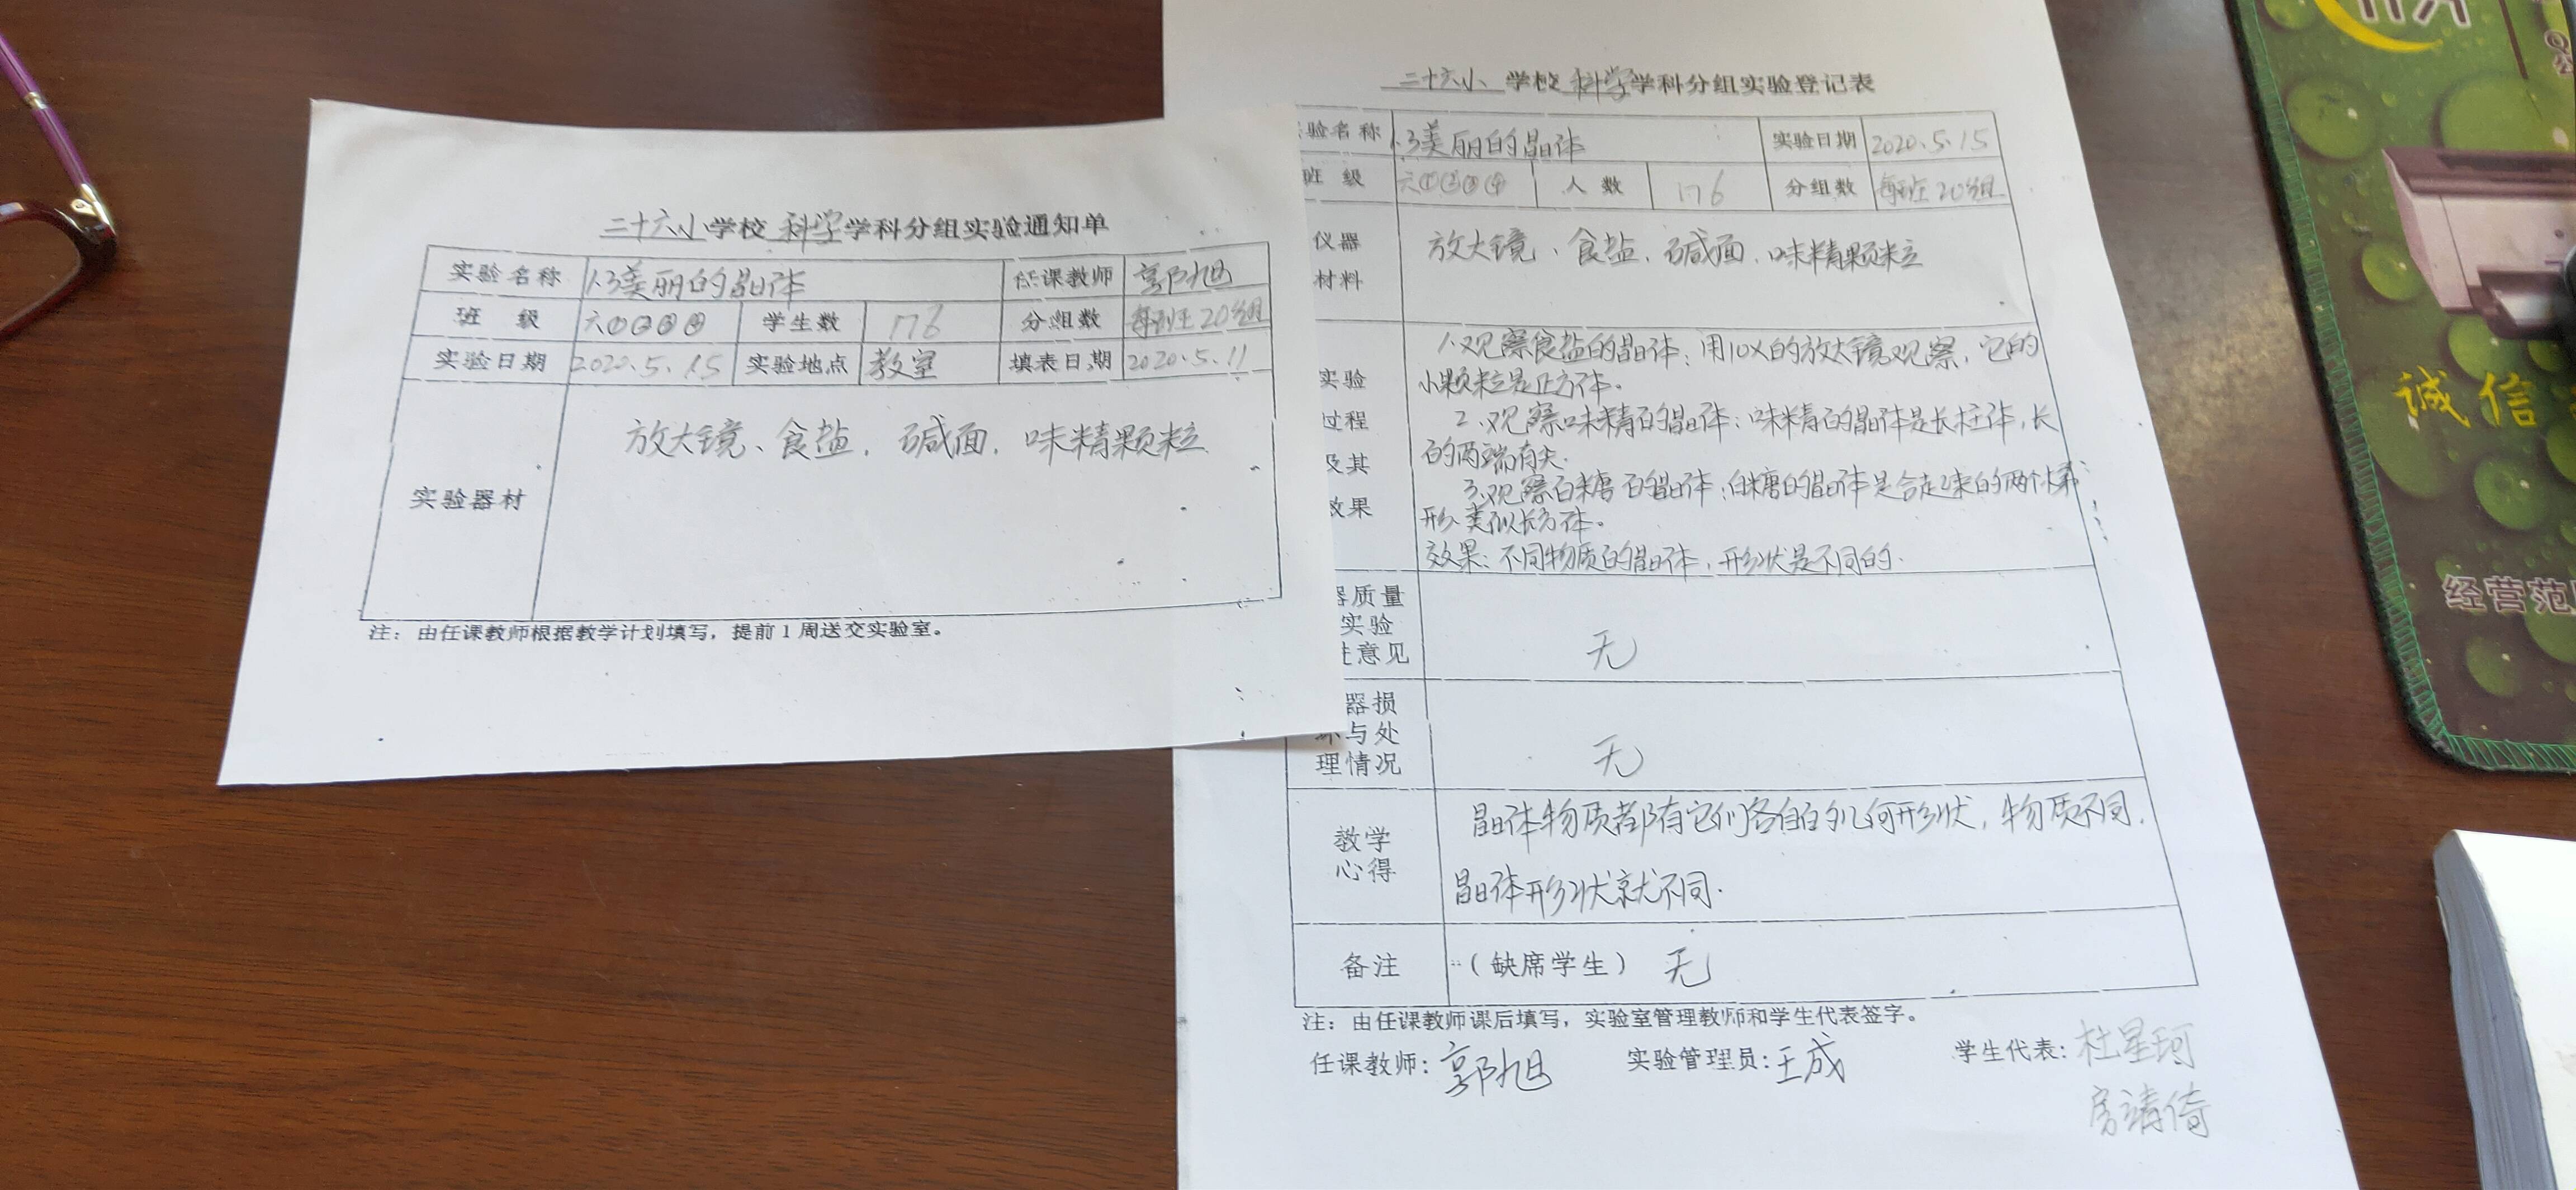 二十六小学校 科学学科分组实验通知单
实验名称 1.3美丽的晶体 任课教师 郭旭
班 级 六①②③④ 学生数 176 分组数 每班20组
实验日期 2020.5.15 实验地点 教室 填表日期 2020.5.11
实验器材 放大镜、食盐、碱面、味精颗粒
注：由任课教师根据教学计划填写，提前1周送交实验室。
二十六小 学校 科学学科分组实验登记表
验名称 1.3美丽的晶体 实验日期 2020.5.15
班 级 六①②③④ 人 数 176 分组数 每班20组
仪器
材料
放大镜、食盐、碱面、味精颗粒
实验
过程
及其
效果
1.观察食盐的晶体：用10X的放大镜观察，它的
小颗粒是正方体。
2.观察味精的晶体：味精的晶体是长柱体，长
的两端有尖.
3.观察白糖的晶体，白糖的晶体是合起来的两个梯
形类似长方体。
效果：不同物质的晶体，形状是不同的.
器质量
实验
意见
无
器损
坏与处
理情况
无
教学
心得
晶体物质都有它们各自的几何形状，物质不同.
晶体形状就不同.
备注 （缺席学生） 无
注：由任课教师课后填写，实验室管理教师和学生代表签字。
任课教师：郭旭 实验管理员：王成 学生代表：杜星珂
房靖倚
诚信
经营范